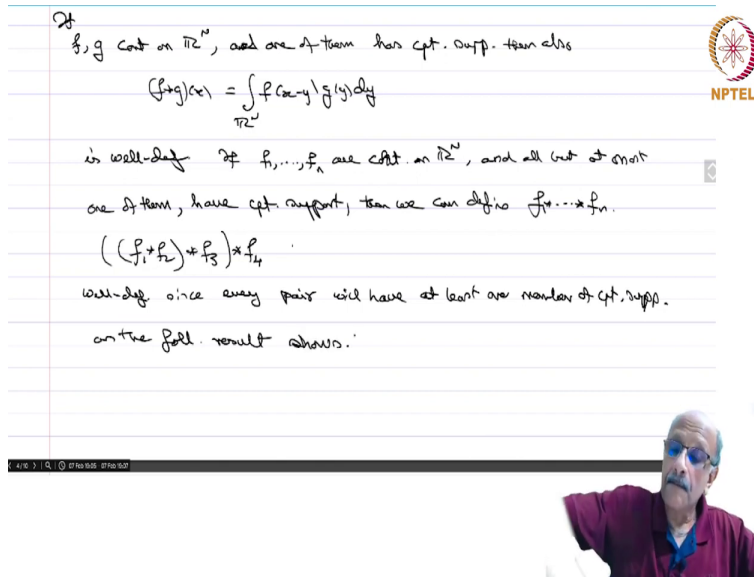 If
f, g cont on ℝ^N, and one of them has cpt. supp. then also
(f*g)(x) = ∫_{ℝ^N} f(x-y) g(y) dy
is well-def. If f₁,...,fₙ are cont. on ℝ^N, and all but at most
one of them, have cpt. support, then we can define f₁*...*fₙ.
((f₁*f₂)*f₃)*f₄
well-def. since every pair will have at least one member of cpt. supp.
as the foll. result shows.
NPTEL
4/10 07 Feb 15:05 07 Feb 15:07